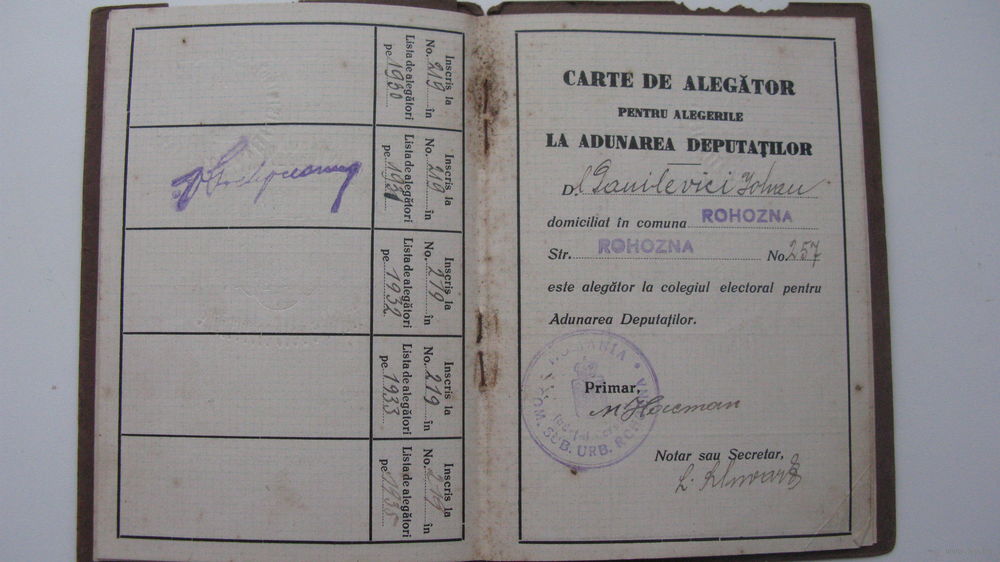 Inscris la
No. 219 în
Lista de alegători
pe 1930
Inscris la
No. 219 în
Lista de alegători
pe 1931
Inscris la
No. 219 în
Lista de alegători
pe 1932
Inscris la
No. 219 în
Lista de alegători
pe 1933
Inscris la
No. 219 în
Lista de alegători
pe 1935
CARTE DE ALEGĂTOR
PENTRU ALEGERILE
LA ADUNAREA DEPUTAȚILOR
D. Danilevici Johan
domiciliat în comuna ROHOZNA
Str. ROHOZNA No. 257
este alegător la colegiul electoral pentru
Adunarea Deputaților.
ROMANIA
COM. SUB. URB.
Primar,
Notar sau Secretar,